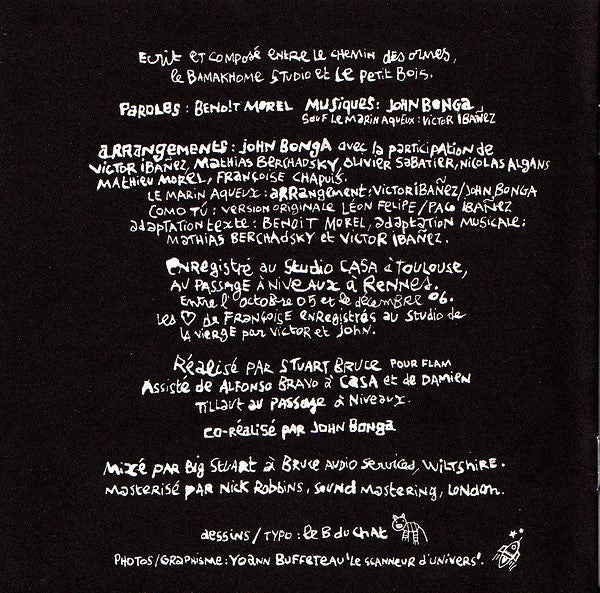 Ecrit et composé entre le chemin des ormes,
le Bamakhome Studio et le Petit Bois.
Paroles : Benoît Morel Musiques : John Bonga
sauf le marin aqueux : Victor Ibañez
arrangements : John Bonga avec la participation de
Victor Ibañez, Mathias Berchadsky, Olivier Sabatier, Nicolas Algans
Mathieu Morel, Françoise Chapuis.
Le marin aqueux : arrangement : Victor Ibañez / John Bonga
Como tú : version originale Léon Felipe / Paco Ibañez
adaptation texte : Benoit Morel, adaptation musicale :
Mathias Berchadsky et Victor Ibañez.
Enregistré au Studio Casa à Toulouse,
au Passage à Niveaux à Rennes.
Entre l'octobre 05 et le décembre 06.
Les ♡ de Françoise enregistrés au studio de
la vierge par Victor et John.
Réalisé par Stuart Bruce pour Flam
Assisté de Alfonso Bravo à Casa et de Damien
Tillaut au Passage à Niveaux.
co-réalisé par John Bonga
Mixé par Big Stuart à Bruce Audio Services, Wiltshire.
Masterisé par Nick Robbins, Sound Mastering, London.
dessins / typo : le B du chat
Photos / Graphisme : Yoann Buffeteau 'le scanneur d'univers'.